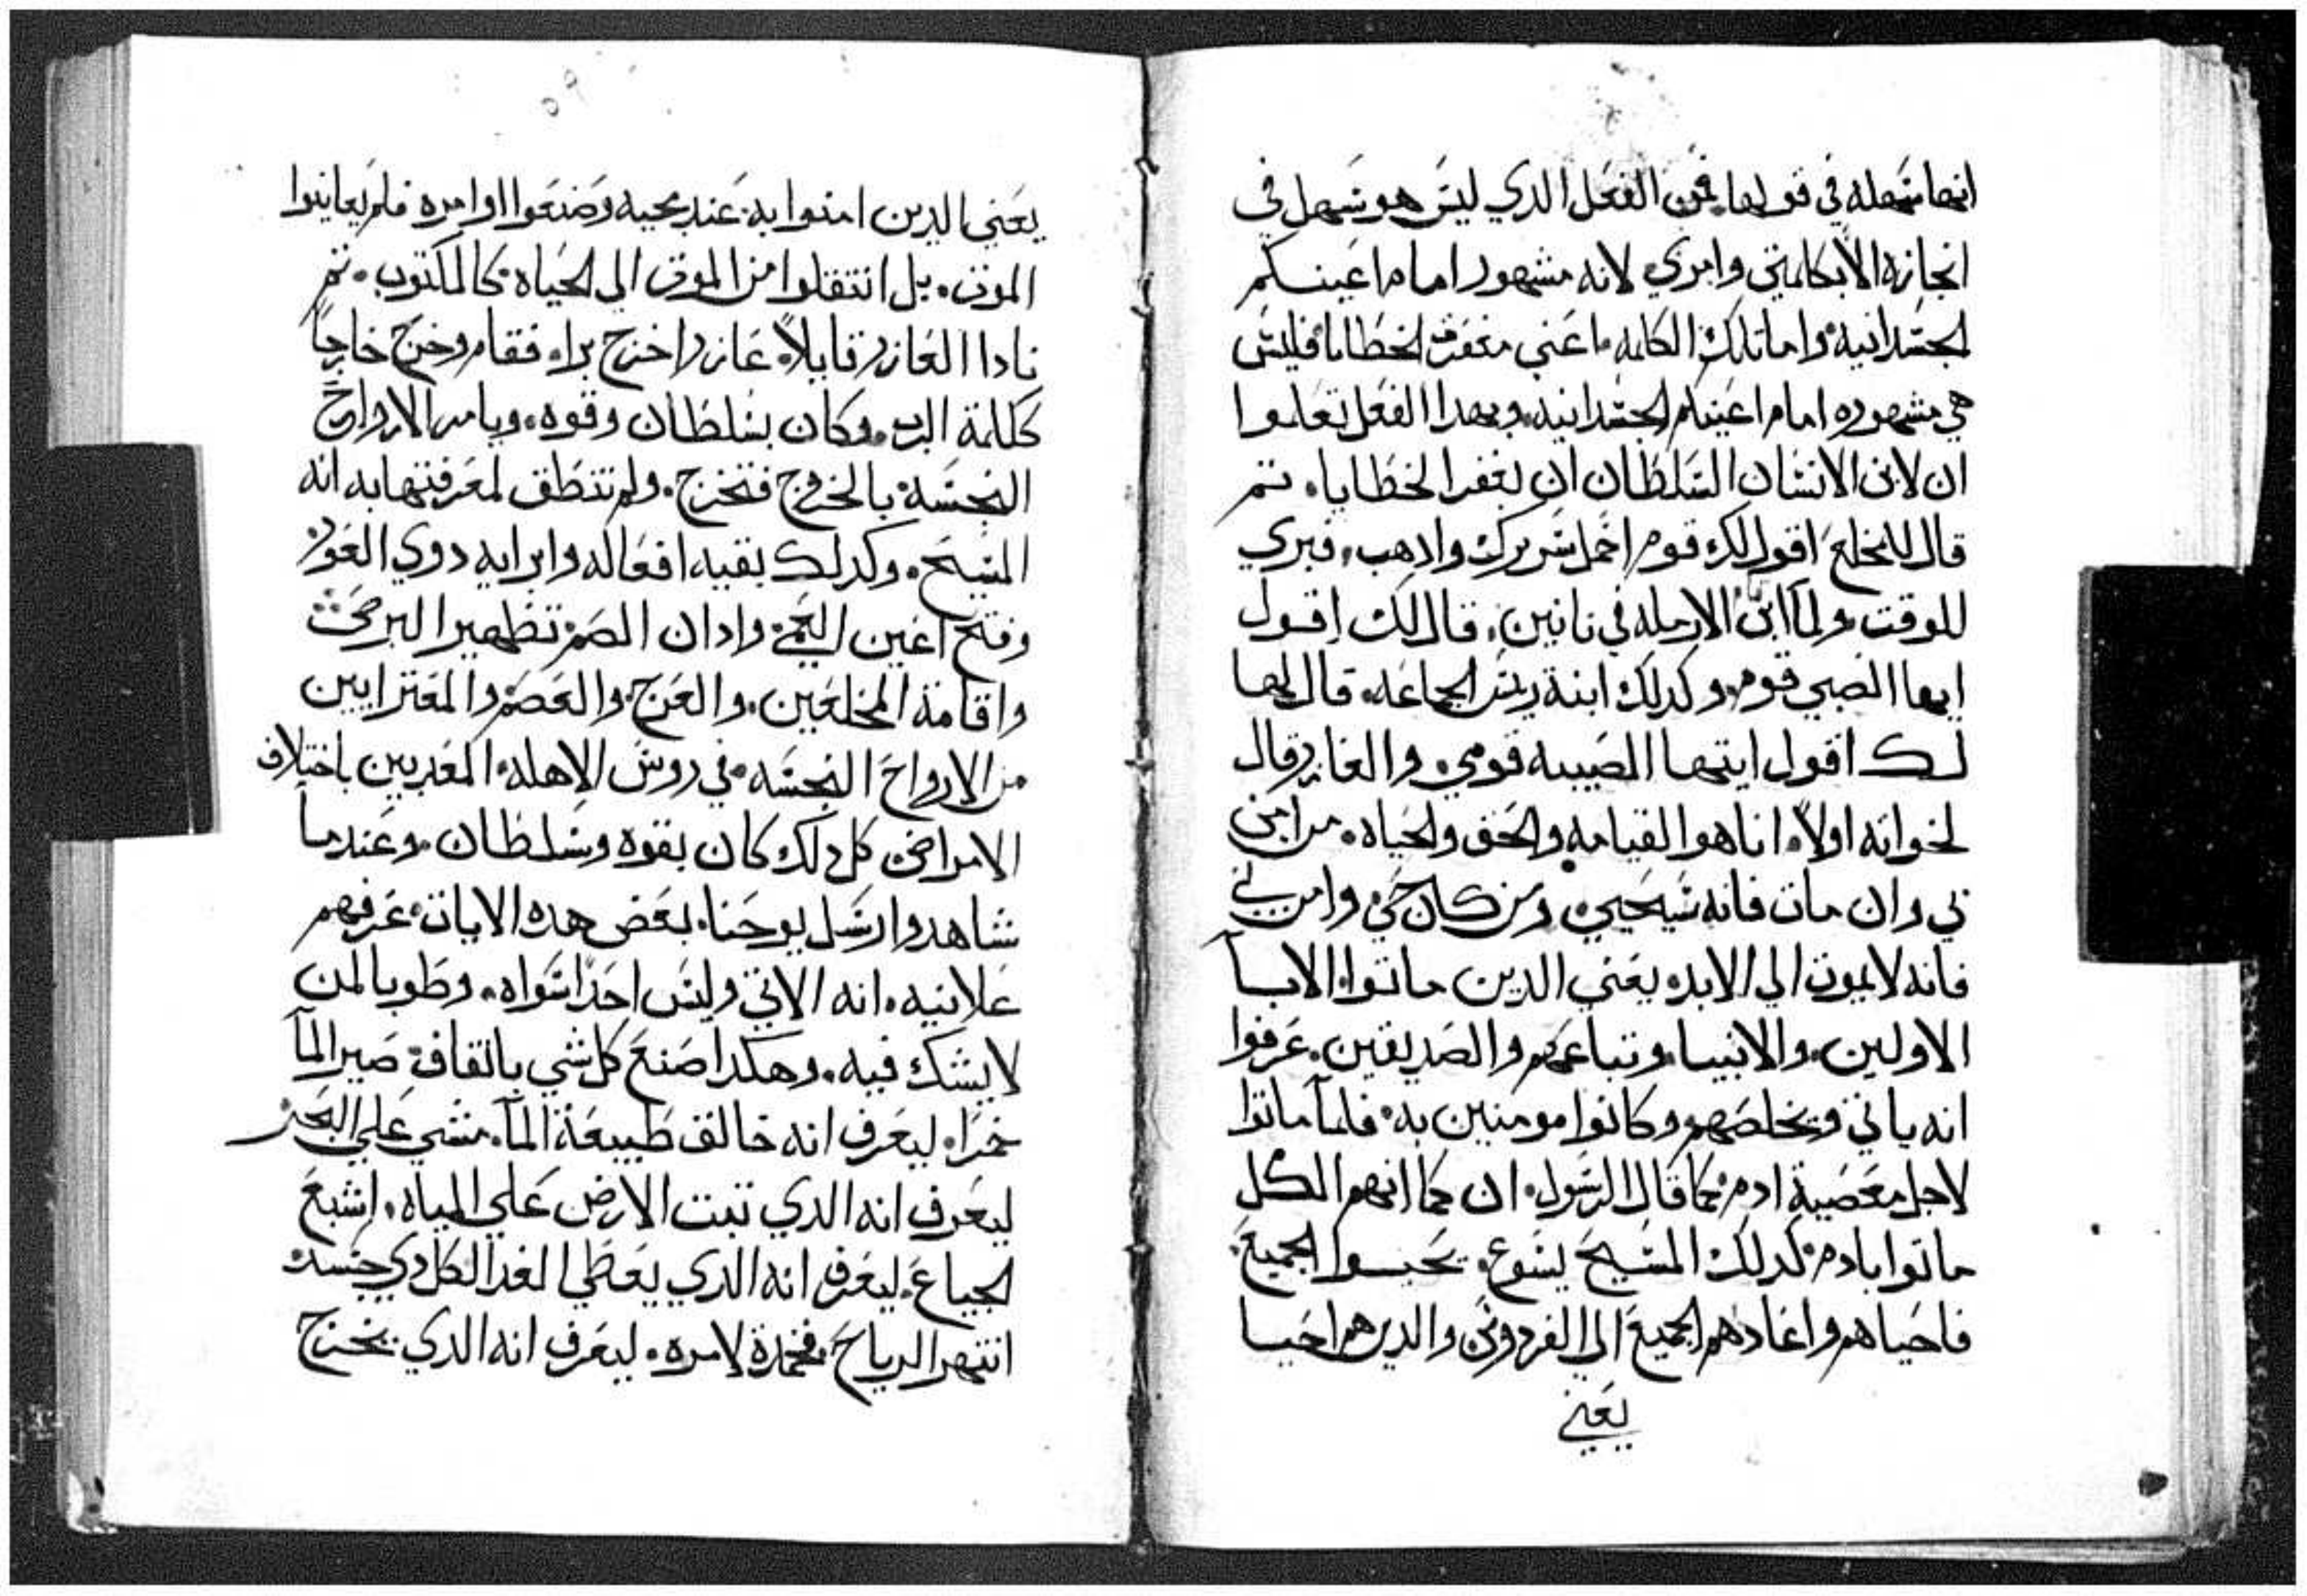 انها سهله في قولها فمن الفعل الدي ليس هو سهل في
انجازه الا بكلمتي وامري لانه مشهور امام اعينكم
الجسدانيه واما تلك الكلمه اعني مغفرة الخطايا فليس
هي مشهوره امام اعينكم الجسدانيه وبهدا الفعل تعلموا
ان لابن الانسان السلطان ان يغفر الخطايا. تم
قال للمخلع اقول لك قوم احمل سريرك وادهب. فبري
للوقت ولما ابن الارمله في نايين. قال لك اقول
ايها الصبي قوم. وكدلك ابنة ريس الجماعه. قال لها
لك اقول ايتها الصبيه قومي. والعازر قال
لخواته اولاً. انا هو القيامه والحق والحياه. من امن
بي وان مات فانه سيحيي. ومن كان حي وامن بي
فانه لا يموت الي الابد. يعني الدين ماتوا. الابآ
الاولين. والانبيا. وتباعهم والصديقين. عرفوا
انه ياتي ويخلصهم وكانوا مومنين به. فلمآ ماتوا
لاجل معصية ادم. كما قال الرسول. ان كما انهم الكل
ماتوا بادم. كدلك المسيح يسوع. الجميع
فاحياهم واعادهم الجميع الي الفردوس. والدين هم احيا
يعني
يعني الدين امنوا به عند مجيه وصنعوا اوامره فلم يعاينوا
الموت. بل انتقلوا من الموت الي الحياه. كالمكتوب. تم
نادا العازر قايلاً. عازر اخرج برا. فقام وخرج خارجاً
ككلمة الرب. وكان بسلطان وقوه. ويامر الارواح
النجسه بالخروج فتخرج. ولم تنطق لمعرفتها به انه
المسيح. وكدلك بقيه افعاله وابرايه دوي العور
وفتح اعين العمي وادان الصم. تطهير البرص
واقامة المخلعين. والعرج. والعصم. والمعترايين
من الارواح النجسه في روس الاهله. المعدبين باختلاف
الامراض كل دلك كان بقوه وسلطان. وعندما
شاهدوا رسل يوحنا. بعض هده الايات. عرفهم
علانيه. انه الاتي وليس احداً سواه. وطوبا لمن
لا يشك فيه. وهكدا صنع كل شي باتقاف صير المآ
خمراً. ليعرف انه خالق طبيعة المآ. مشي علي البحر
ليعرف انه الدي تبت الارض علي المياه. اشبع
الجياع. ليعرف انه الدي يعطي الغدا لكل دي جسد
انتهر الرياح فخمدة لامره. ليعرف انه الدي يخرج